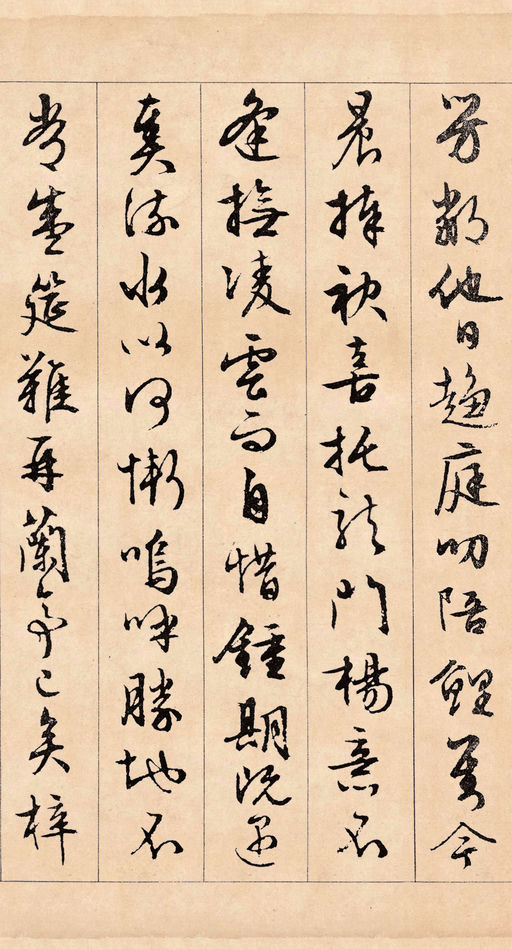 芳鄰他日趨庭叨陪鯉對今
晨捧袂喜托龍門楊意不
逢撫凌雲而自惜鍾期既遇
奏流水以何慚嗚呼勝地不
常盛筵難再蘭亭已矣梓